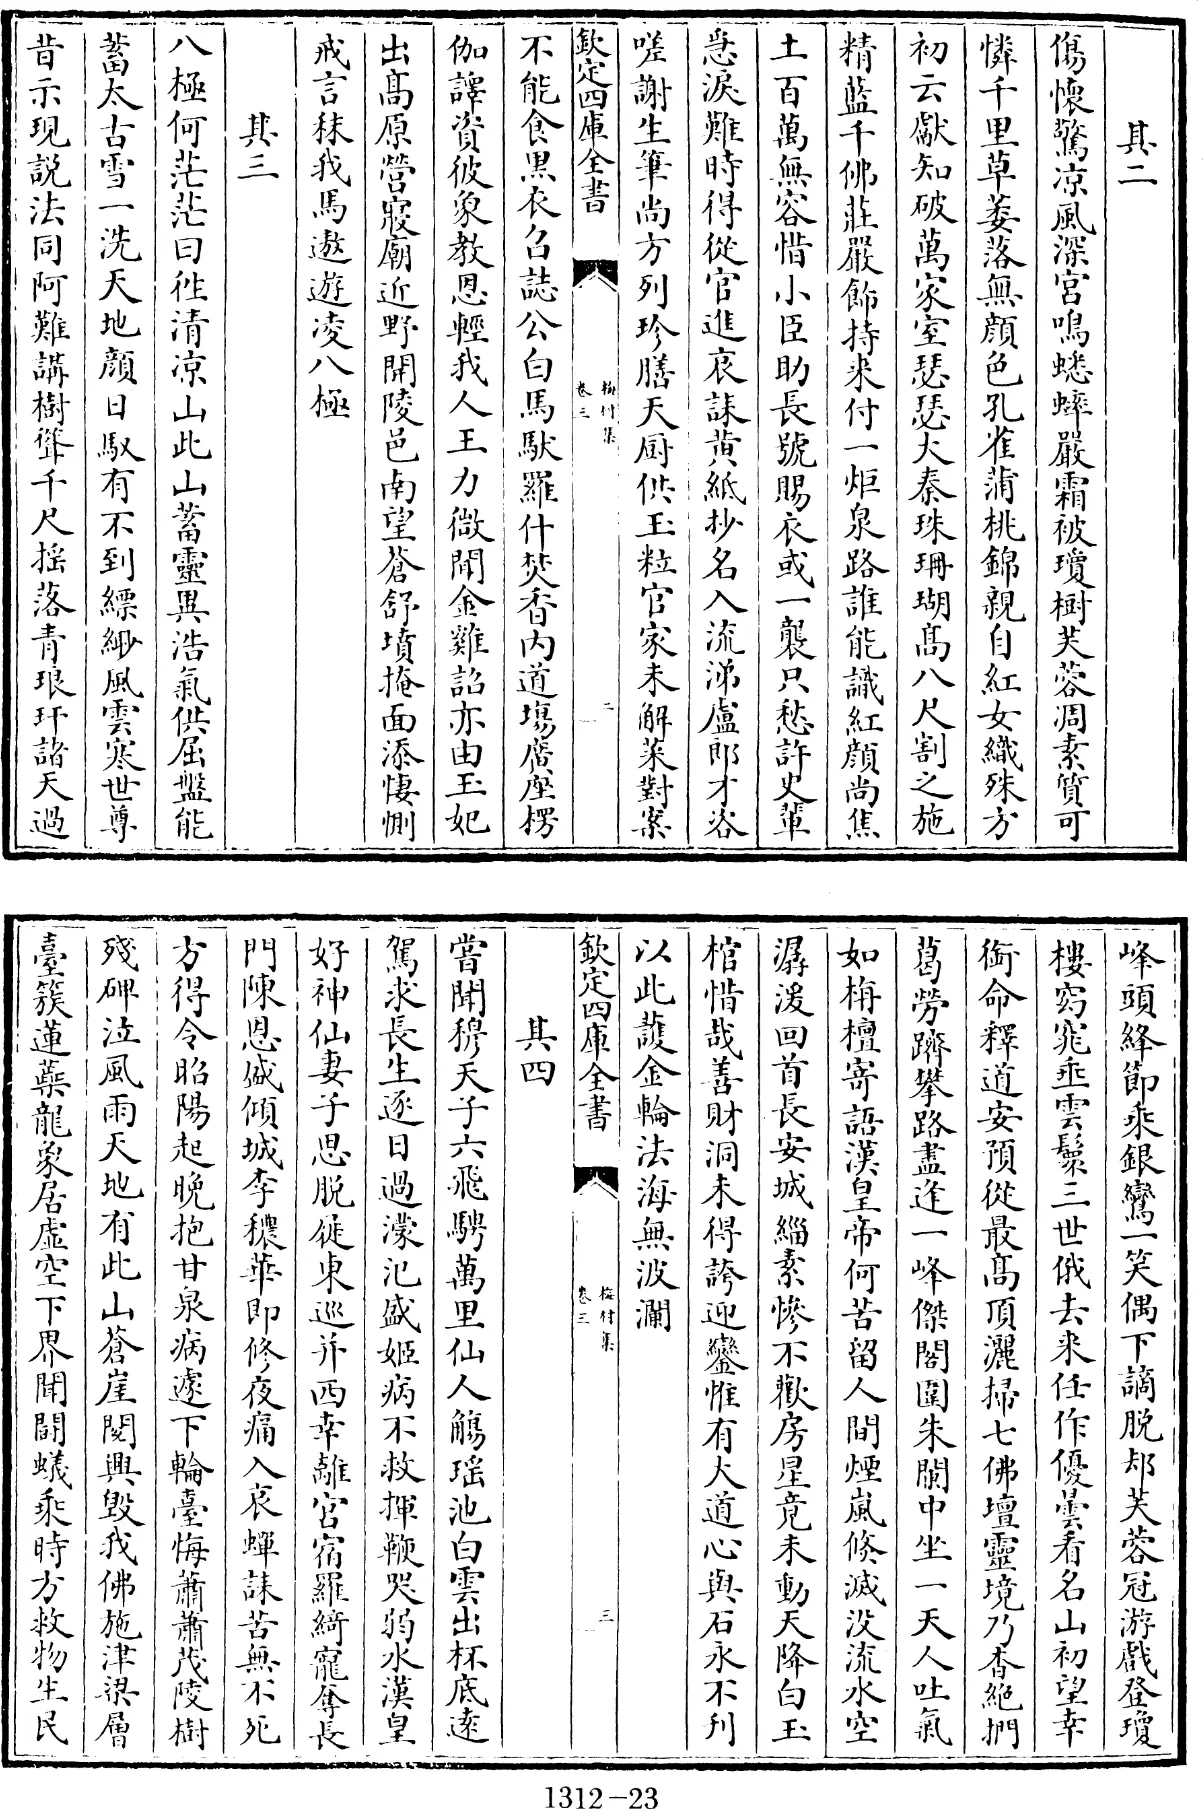 其二
傷懷驚凉風深宮鳴蟋蟀嚴霜被瓊樹芙蓉凋素質可
憐千里草萎落無顔色孔雀蒲桃錦親自紅女織殊方
初云獻知破萬家室瑟瑟大秦珠珊瑚髙八尺割之施
精藍千佛莊嚴飾持来付一炬泉路誰能識紅顔尚焦
土百萬無容惜小臣助長號賜衣或一襲只愁許史軰
急淚難時得從官進哀誄黄紙抄名入流涕盧郎才咨
嗟謝生筆尚方列珍膳天厨供玉粒官家未解菜對案
欽定四庫全書
梅村集
卷三
二
不能食黒衣召誌公白馬馱羅什焚香内道場廣座楞
伽譯資彼象教恩輕我人王力微聞金雞詔亦由玉妃
出髙原營寢廟近野開陵邑南望蒼舒墳掩面添悽惻
戒言秣我馬遨遊凌八極
其三
八極何茫茫曰徃清凉山此山蓄靈異浩氣供屈盤能
蓄太古雪一洗天地顔日馭有不到縹緲風雲寒世尊
昔示現説法同阿難講樹聳千尺揺落青琅玕諸天過
峰頭絳節乘銀鸞一笑偶下謫脱却芙蓉冠游戲登瓊
樓窈窕垂雲鬟三世俄去来任作優曇看名山初望幸
銜命釋道安預從最髙頂灑掃七佛壇靈境乃杳絶捫
葛勞躋攀路盡逢一峰傑閣圍朱闌中坐一天人吐氣
如栴檀寄語漢皇帝何苦留人間煙嵐倏滅没流水空
潺湲回首長安城緇素慘不歡房星竟未動天降白玉
棺惜哉善財洞未得誇迎鑾惟有大道心與石永不刋
以此䕶金輪法海無波瀾
欽定四庫全書
梅村集
卷三
三
其四
嘗聞穆天子六飛騁萬里仙人觴瑶池白雲出杯底逺
駕求長生逐日過濛汜盛姬病不救揮鞭哭弱水漢皇
好神仙妻子思脱屣東巡并西幸離宮宿羅綺寵奪長
門陳恩盛傾城李穠華即修夜痛入哀蟬誄苦無不死
方得令昭陽起晚抱甘泉病遽下輪臺悔蕭蕭茂陵樹
殘碑泣風雨天地有此山蒼崖閲興毁我佛施津梁層
臺簇蓮蘂龍象居虚空下界聞鬭蟻乘時方救物生民
1312-23